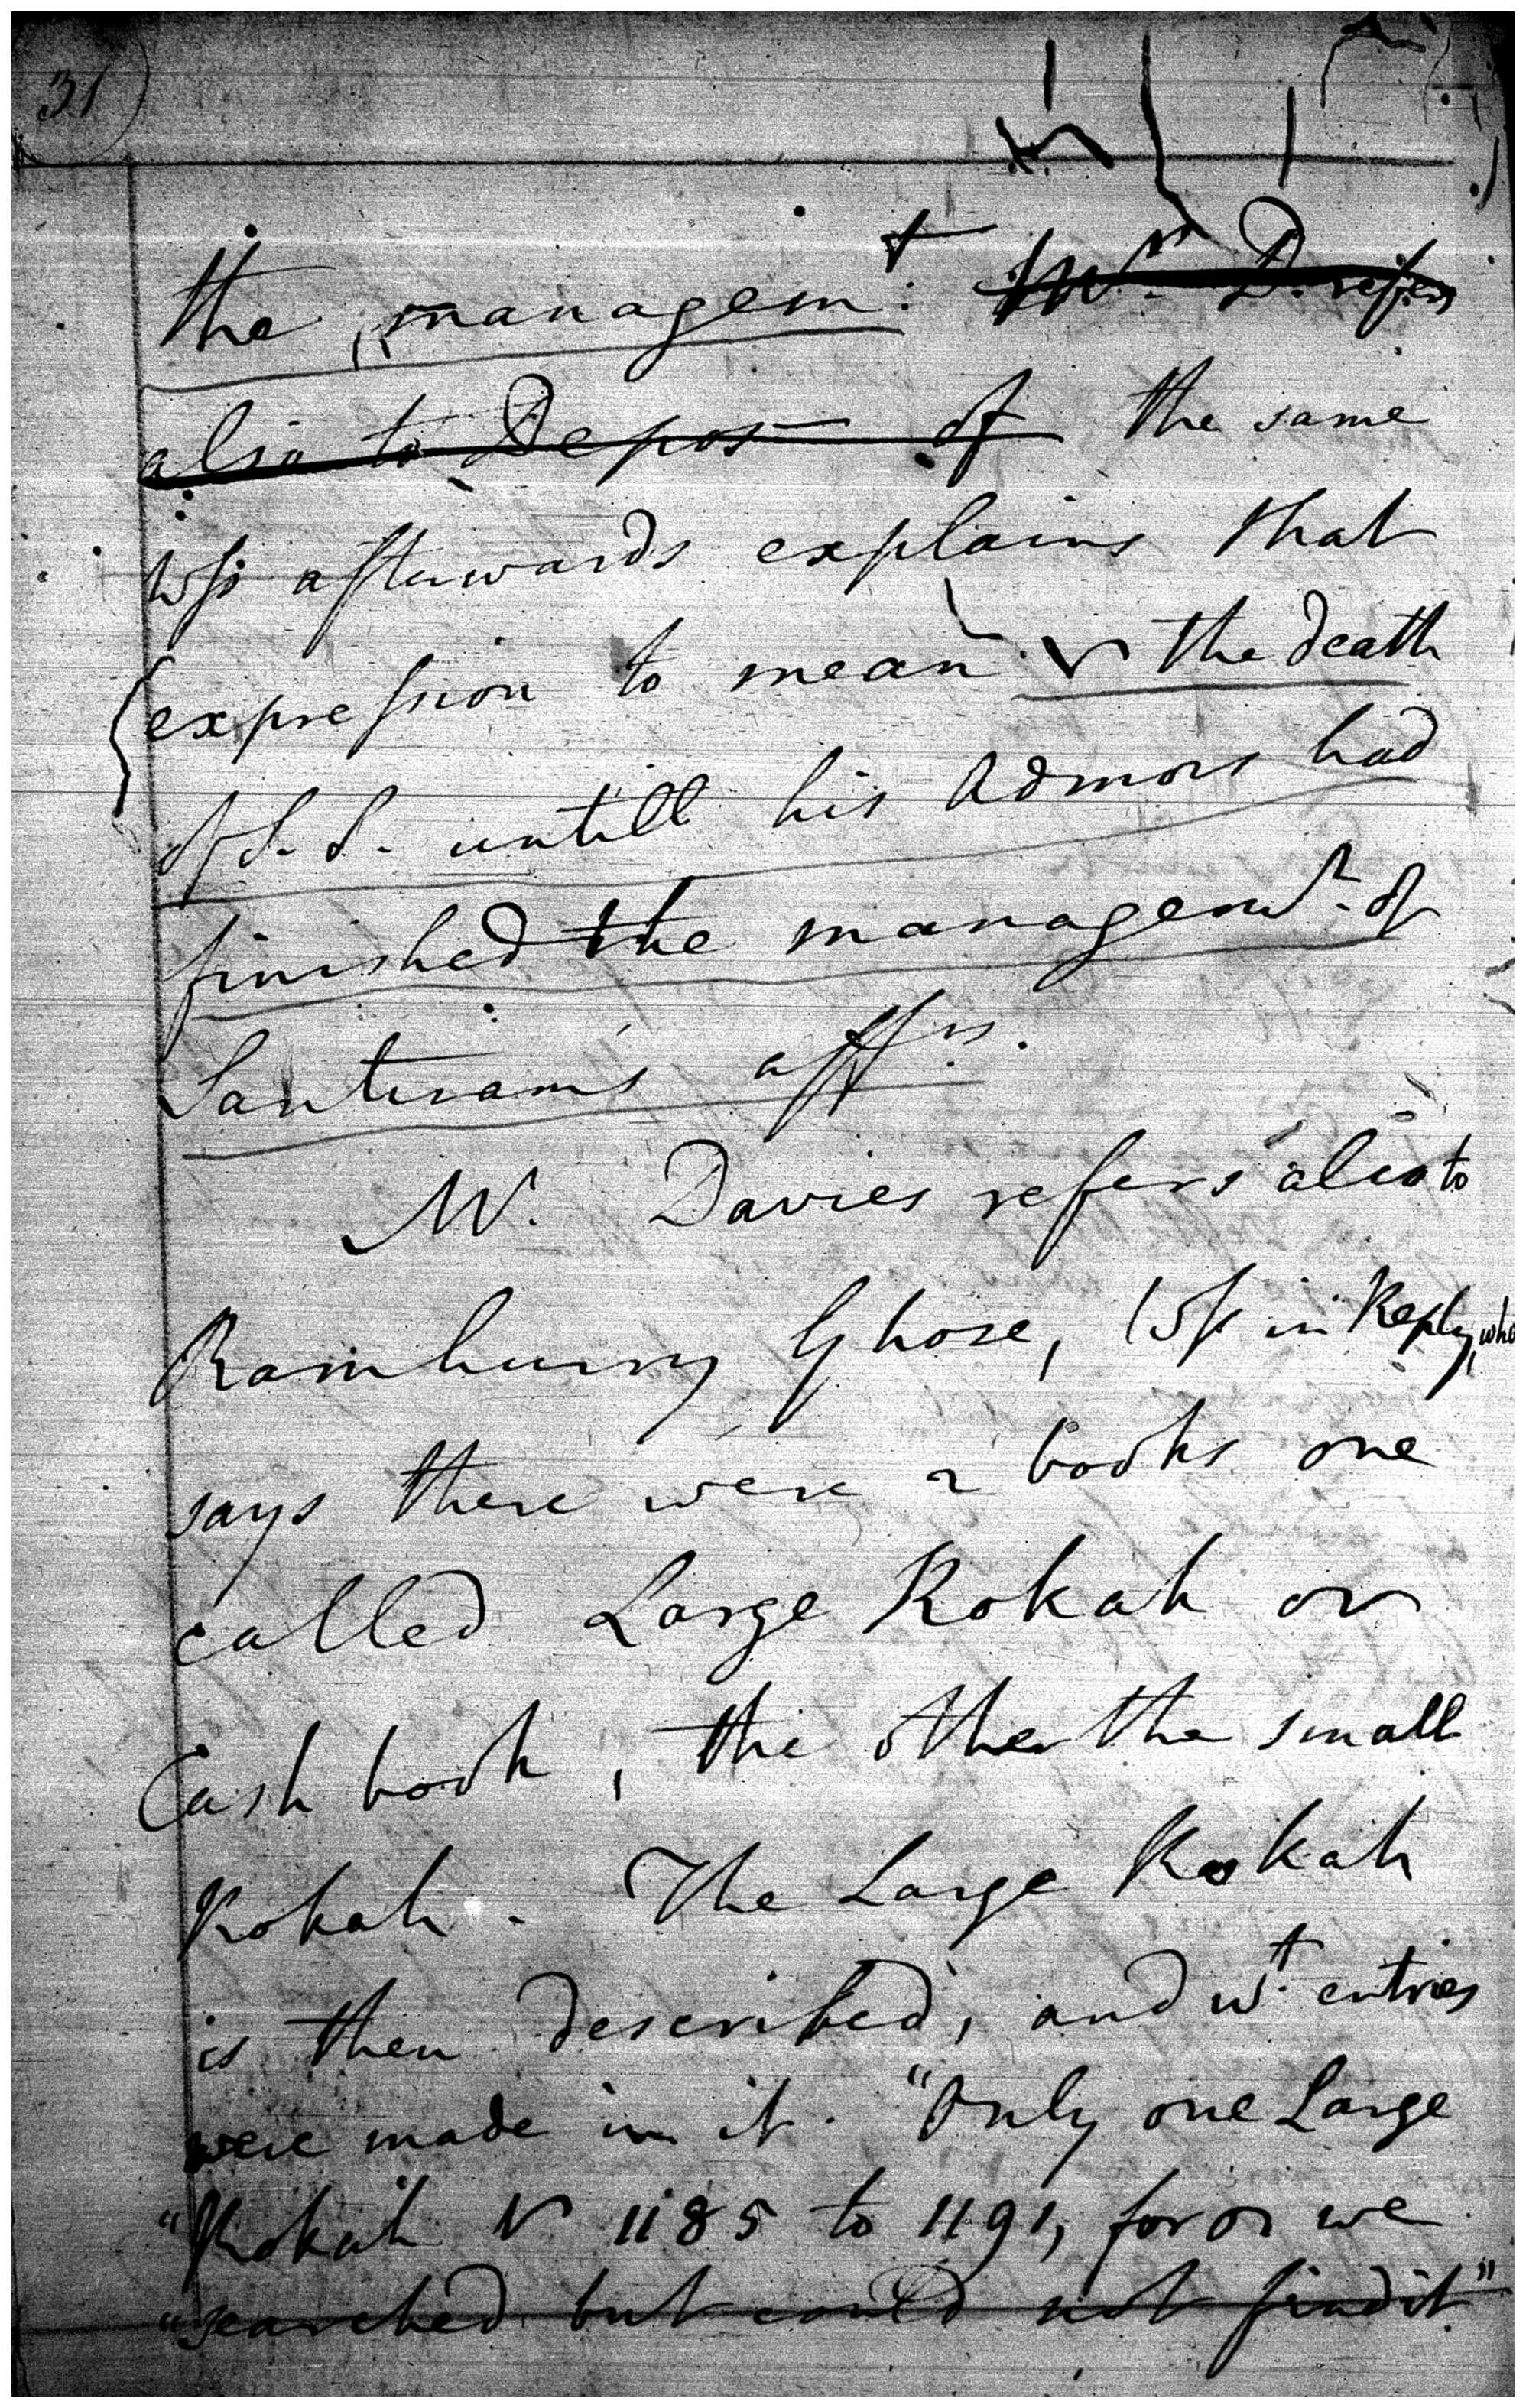 31
the managem.t Mr. D. refers
also to Depos of the same
afterwards explains that
expression to mean the death
of S. S. untill his Admors had
finished the managemt. of
Santiram's affrs.
Mr. Davies refers also to
Ramhurry Ghose, in Reply, who
says there were 2 books one
called Large Rokah or
Cash book, the other the small
Rokah. The Large Rokah
is then described, and wt. entries
were made in it. "Only one Large
"Rokah 1185 to 1191, for we
"searched but could not find it"